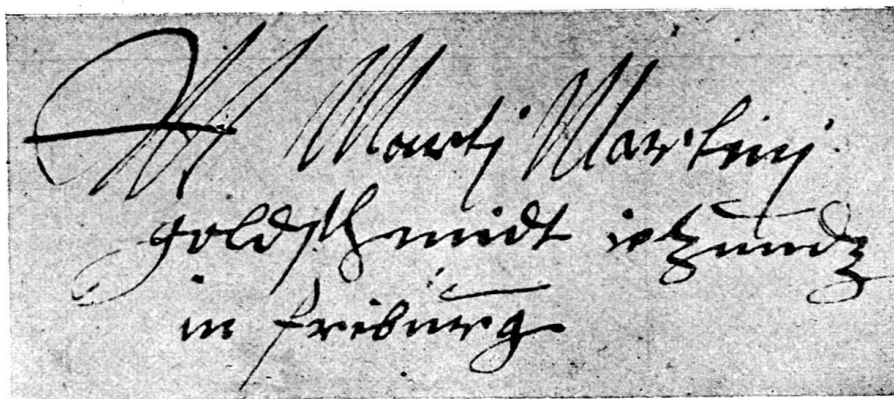 M Martj Martinj
goldschmidt ietzundtz
in friburg